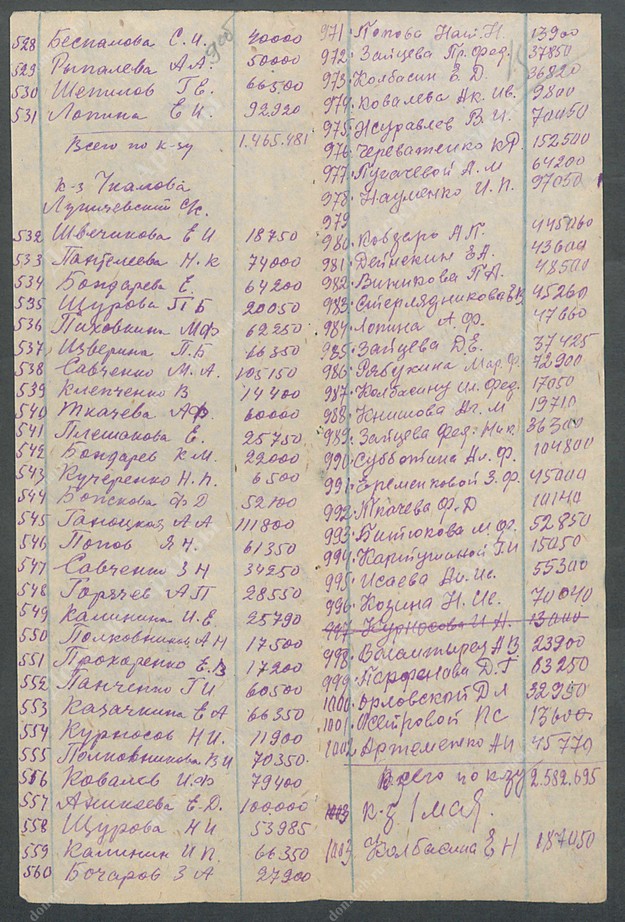 528 Беспалова С. И. 40000
529 Рыпалева А А. 50000
530 Шепилов Г В. 66500
531 Лопина Е И. 92920
Всего по к-зу 1.465.481
к-з Чкалова
с/с.
532 Швечикова Е И 18750
533 Пантелеева Н. К 74000
534 Бондарева Е. 64200
535 Щурова П Б 20050
536 Полковникова М Ф 62250
537 Изверина П. Б 26350
538 Савченко М. А. 105150
539 Клепченко В 14400
540 Ткачева А Ф. 60000
541 Плешакова Е. 25750
542 Бондарев К М. 22000
543 Кучеренко Н. П. 6500
544 Боцкова Ф Д 52100
545 Ганоцкая А А 111800
546 Попов Я Н. 61350
547 Савченко З Н 34250
548 Горячев А П 28550
549 Калинина И. Е. 25790
550 Полковников А Н 17500
551 Прохаренко Е. В 17200
552 Панченко Г И 60500
553 Казачкина Е А 66350
554 Курносов Н И. 11900
555 Полковникова В И 70350
556 Ковалев И. Ф 79400
557 Аникеева Е. Д. 100000
558 Щурова Н И 53985
559 Калинин И П. 66350
560 Бочаров З А 27900
971 Попова Нат. Н. 13900
972. Зайцева Пр. Фед. 37850
973. Колбасин Е. Д. 36820
974. Ковалева Ак. Ив. 9800
975. Журавлев В И. 70050
976. Череватенко К Р. 152500
977. Пугачевой А. М 64200
978. Науменко И. П. 97050
979
980. Ковзиро А П. 445060
981. Дейнекин Е А. 43600
982. Винникова П А. 48500
983. Стерлядникова Е В 45260
984. Лопина А. Ф. 47660
985. Зайцева Д Е. 37425
986. Рябухина Мар. Ф. 72900
987. Колбасину Ил. Фед. 17050
988. Книшова Аг. М 19710
989. Зайцева Фед. Ник. 36300
990. Субботина Ал. Ф. 104800
991. Еременковой З. Ф. 45000
992. Ткачева Ф. Д 10140
993. Битюкова М. Ф. 52850
994. Картушиной Г И 15050
995. Исаева Ан. Ив. 55300
996. Козина Н. Ив. 70040
997. Курносова И А. 13000
998. А В 23900
999. Парфенова Д. Г 63250
1000. Орловской Д Я 32950
1001. Петровой П С 13600
1002. Артеменко А И 45770
Всего по к-зу 2.582.695
1003 к-з 1 мая.
1003. Колбасина Е Н 187050